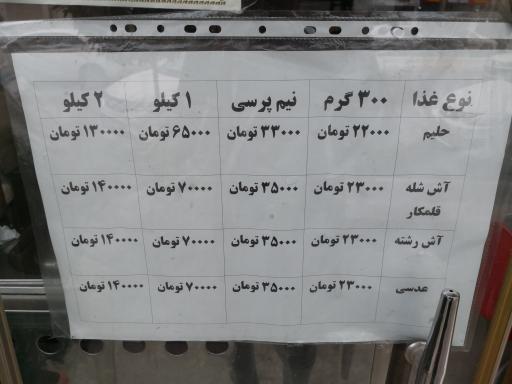 نوع غذا ۳۰۰ گرم نیم پرسی ۱ کیلو ۲ کیلو
حلیم ۲۲۰۰۰ تومان ۳۳۰۰۰ تومان ۶۵۰۰۰ تومان ۱۳۰۰۰۰ تومان
آش شله ۲۳۰۰۰ تومان ۳۵۰۰۰ تومان ۷۰۰۰۰ تومان ۱۴۰۰۰۰ تومان
قلمکار
آش رشته ۲۳۰۰۰ تومان ۳۵۰۰۰ تومان ۷۰۰۰۰ تومان ۱۴۰۰۰۰ تومان
عدسی ۲۳۰۰۰ تومان ۳۵۰۰۰ تومان ۷۰۰۰۰ تومان ۱۴۰۰۰۰ تومان